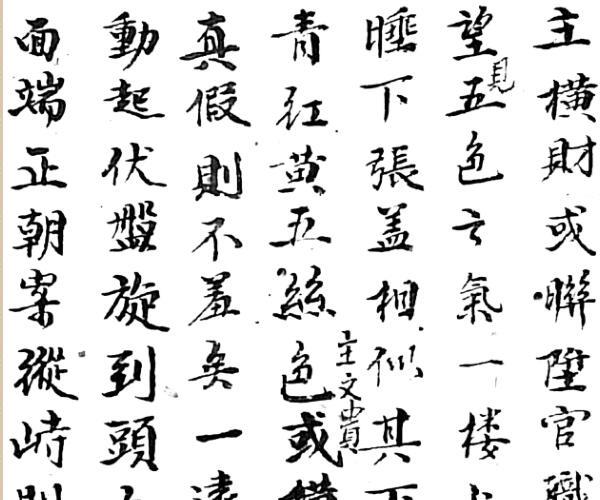 主橫財或聯陞官職
望見五色云氣一楼
睡下張盖相似其下
青紅黄五絲色主文貴或橫
真假則不羞矣一遠
動起伏盤旋到頭
面端正朝案縱峙則